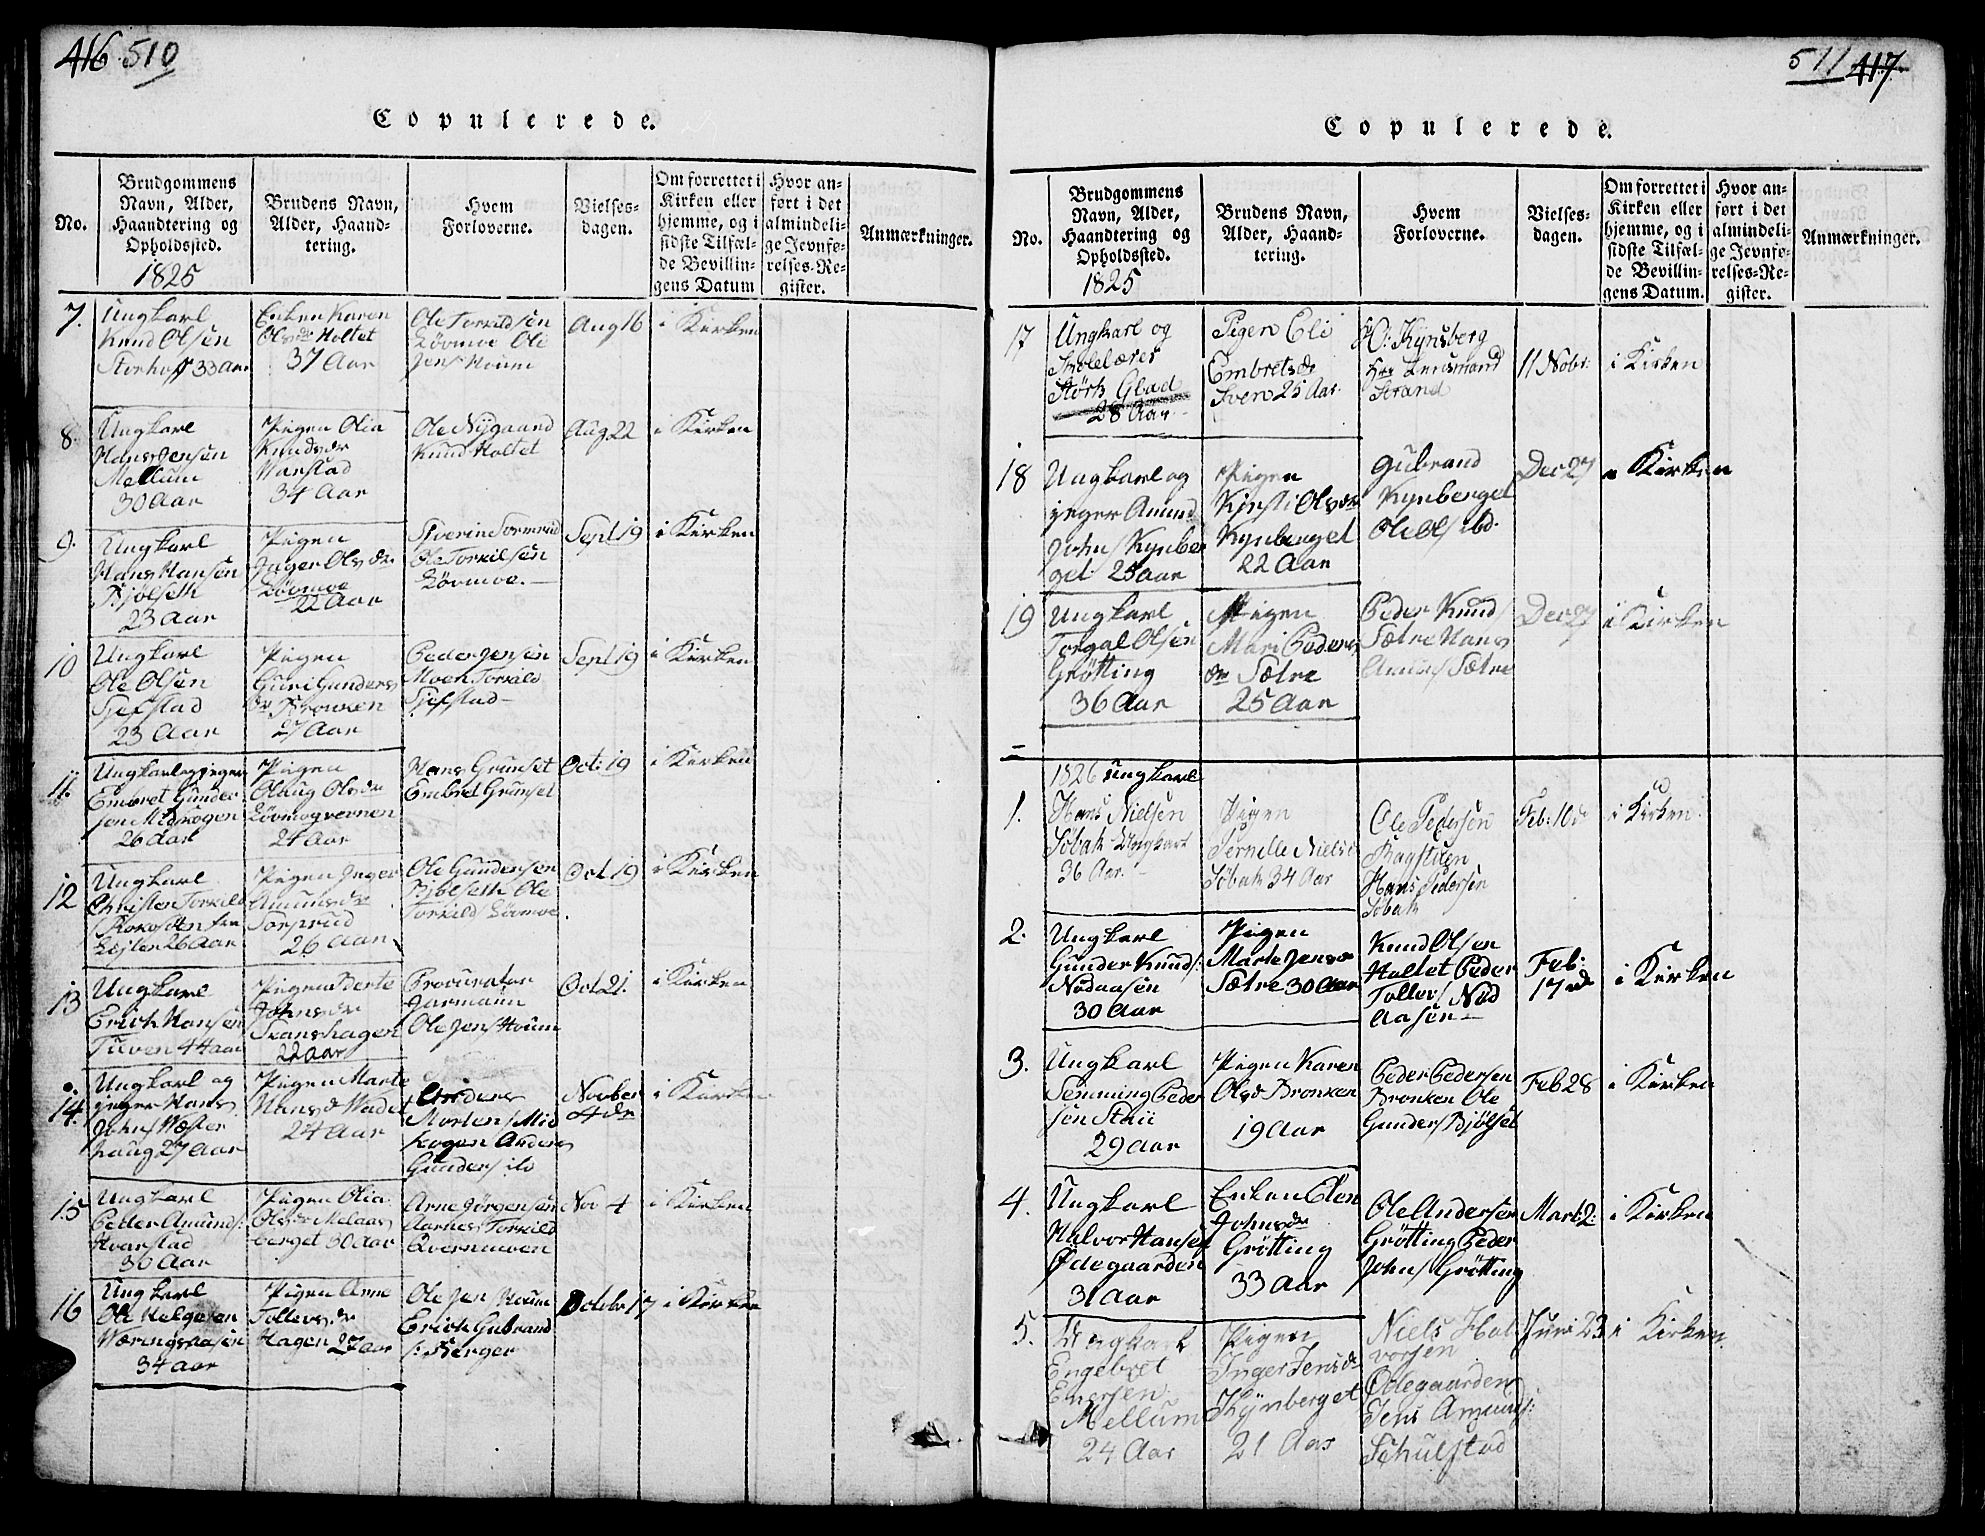 416 510
Copulerede.
No.
Brudgommens
Navn, Alder,
Haandtering og
Opholdssted.
1825
Brudens Navn,
Alder, Haand-
tering.
Hvem
Forloverne.
Vielses-
dagen.
Om forrettet i
Kirken eller
hjemme, og i
sidste Tilfæl-
de Bevillin-
gens Datum
Hvor an-
ført i det
almindeli-
ge Jevnfø-
relses-Re-
gister.
Anmærkninger.
7.
Ungkarl
Knud Olsen
33 Aar
Enken Karen
Olsdr Holtet
37 Aar
Ole Torkildsen
Lövmoe Ole
Jens Houm
Aug 16
i Kirken
8.
Ungkarl
Hans Jensen
Mellum
30 Aar
Pigen Olia
Knudsdr
34 Aar
Ole Nygaard
Knud Holtet
Aug 22
i Kirken
9.
Ungkarl
Hans Hansen
Kjölseth
23 Aar
Pigen
Inger Olsdr
Lövmoe
22 Aar
Ole Torkilsen
Lövmoe.
Sept 19
i Kirken
10
Ungkarl
Ole Olsen
23 Aar
Pigen
Guri Gunders
dr Bronken
27 Aar
Peder Jensen
Moen Torkild
Sept 19
i Kirken
11.
Ungkarl og jeger
Embret Gunder
sen Midskogen
26 Aar
Pigen
Olaug Olsdr
24 Aar
Hans Grunset
Embret Grunset
Oct: 19
i Kirken
12
Ungkarl
Christen Torkild
26 Aar
Pigen Inger
Amunsdr
26 Aar
Ole Gundersen
Ole
Torkilds Lövmoe.
Oct 19
i Kirken
13
Ungkarl
Erich Hansen
Tuven 44 aar
Pigen Berte
Johnsdr
22 aar
Procurator
Jarmann
Ole Jens Houm
Oct 21.
i Kirken
14.
Ungkarl og
jeger Hans
Johns Wester
haug 27 aar
Pigen Marte
Hansd
24 Aar
Anders
Mortens Mid
skogen Anders
Gunders
Novber
4de
i Kirken
15
Ungkarl
Peder Amunds:
30 Aar
Pigen Olia
Olsdr Melaas
berget 30 Aar
Arne Jörgensen
Aarnes Torkild
Qvernmoen
Nov 4
i Kirken
16
Ungkarl
Ole Helgesen
34 aar
Pigen Anne
Tollersdr
Hagen 27 aar
Ole Jens Houm
Erich Gubrand
s: Berger
Octobr 17
i Kirken
511 417
Copulerede.
No.
Brudgommens
Navn, Alder,
Haandtering og
Opholdssted.
1825
Brudens Navn,
Alder, Haand-
tering.
Hvem
Forloverne.
Vielses-
dagen.
Om forrettet i
Kirken eller
hjemme, og i
sidste Tilfæl-
de Bevillin-
gens Datum.
Hvor an-
ført i det
almindeli-
ge Jevnfø-
relses-Re-
gister.
Anmærkninger.
17
Ungkarl og
Skolelærer
Störk Glad
28 Aar
Pigen Eli
Embretsdr
Iven 25 Aar
Kynsberg
Lensmand
Strand
11 Nobr.
i Kirken
18
Ungkarl og
jeger Amund
Johns Kynber
get 25 aar
Pigen
Kjersti Olsdr
Kynberget
22 Aar
Gubrand
Kynberget
Ole Ols ibd.
Dec 27
i Kirken
19
Ungkarl
Torgal Olsen
Grötting
36 Aar
Pigen
Mari Peders
dr Sætre
25 Aar
Peder Knuds
Sætre Hans
Amuns Sætre
Dec 27
i Kirken
1.
1826 ungkarl
Hans Nielsen
Söbak
36 Aar.
Pigen
Pernille Nielsd
Söbak 34 Aar
Ole Pedersen
Hans Pedersen
Söbak
Feb: 10de
i Kirken
2.
Ungkarl
Gunder Knuds:
Nödaasen
30 Aar
Pigen
Marte Jensdr
Sætre 30 Aar
Knud Olsen
Holtet Peder
Tollers Nöd
aasen
Feb:
17de
i Kirken
3.
Ungkarl
Semming Peder
sen Staii
29 Aar
Pigen Karen
Olsd Bronken
19 Aar
Peder Pedersen
Bronken Ole
Gunders Kjölset
Feb 28
i Kirken
4.
Ungkarl
Halvor Hansen
Ödegaarden
31 Aar
Enken Elen
Johnsdr
Grötting
33 Aar
Ole Andersen
Grötting Peder
Johns Grötting
Mart 2:
i Kirken
5.
Ungkarl
Engebret
Enersen
Mellum
24 Aar
Pigen
Inger Jensdr
Kynberget
21 Aar
Niels Hal
vorsen
Ödegaarden
Jens Amunds:
Schulstad
Juni 23
i Kirken.